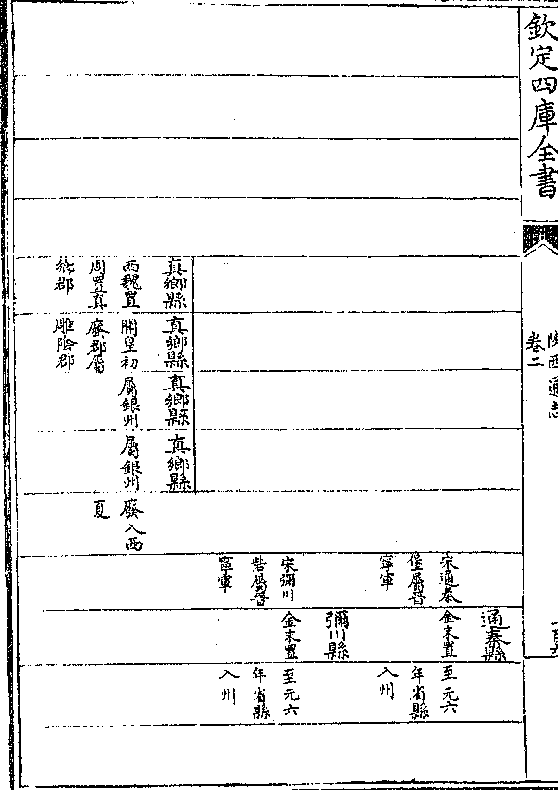 欽定四庫全書
陜西通志
卷二
宋通秦
堡屬晉
寧軍
通秦縣
金末置
至元六
年省縣
入州
宋彌川
砦屬晉
寧軍
彌川縣
金末置
至元六
年省縣
入州
真鄉縣
西魏置
周置真
鄉郡
真鄉縣
開皇初
廢郡屬
雕陰郡
真鄉縣
屬銀州
真鄉縣
屬銀州
廢入西
夏